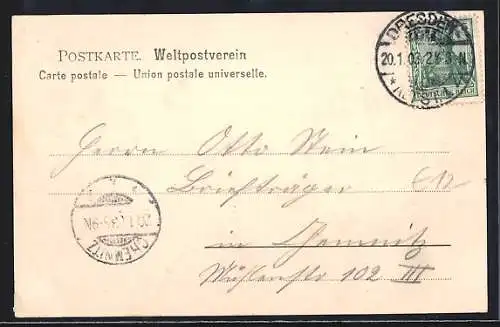 POSTKARTE. Weltpostverein
Carte postale — Union postale universelle.
DRESDEN
20.1.03.
REICH
Herrn Otto Stein
Briefträger
in Chemnitz
Mühlenstr. 102 III
CHEMNITZ